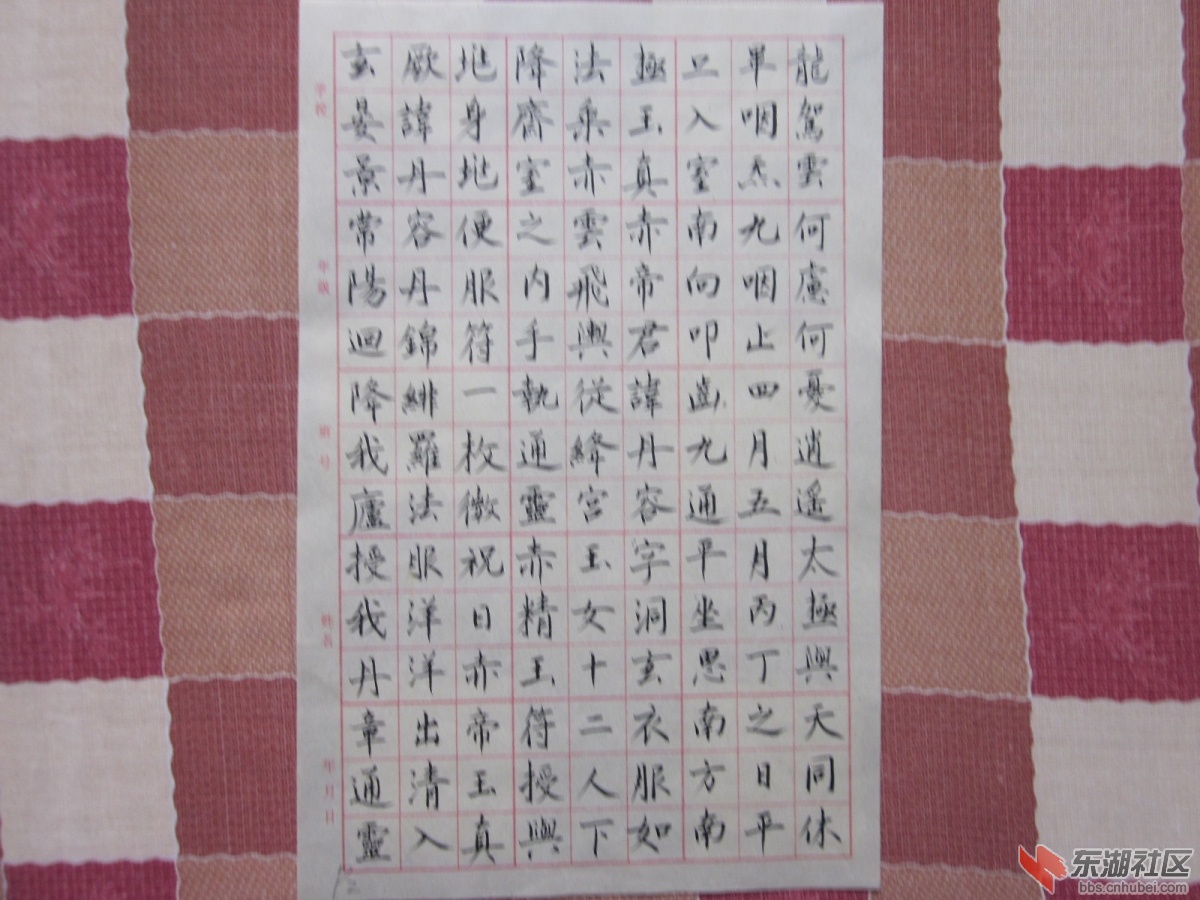 龍駕雲何慮何憂逍遥太極與天同休
畢咽炁九咽止四月五月丙丁之日平
旦入室南向叩齒九通平坐思南方南
極玉真赤帝君諱丹容字洞玄衣服如
法乘赤雲飛輿從絳宫玉女十二人下
降齋室之内手執通靈赤精玉符授與
地身地便服符一枚微祝曰赤帝玉真
厥諱丹容丹錦緋羅法服洋洋出清入
玄晏景常陽迴降我廬授我丹章通靈
学校 年级 姓名 年月日
2
东湖社区
bbs.cnhubei.com